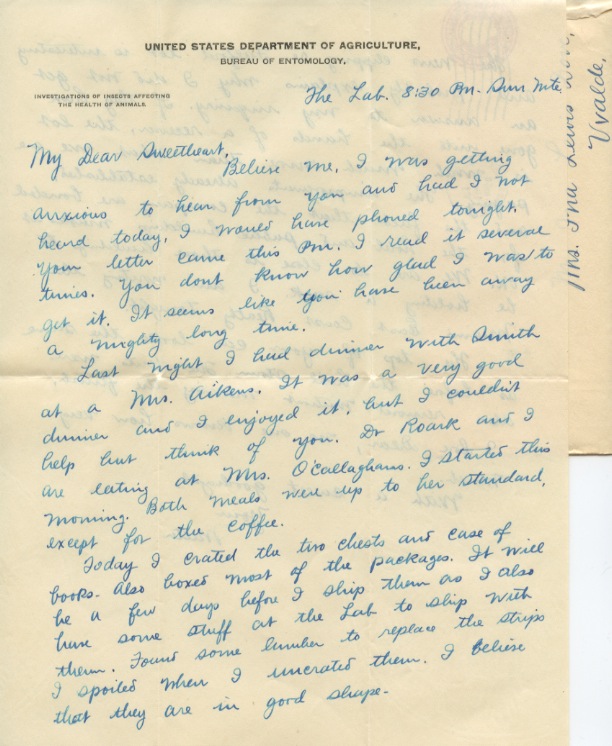 UNITED STATES DEPARTMENT OF AGRICULTURE,
BUREAU OF ENTOMOLOGY.
INVESTIGATIONS OF INSECTS AFFECTING
THE HEALTH OF ANIMALS.
The Lab. 8:30 Pm. Sun Nite,
My Dear Sweetheart,
Believe me, I was getting
anxious to hear from you and had I not
heard today, I would have phoned tonight.
Your letter came this Pm. I read it several
times. You dont know how glad I was to
get it. It seems like you have been away
a mighty long time.
Last night I had dinner with Smith
at a Mrs. Aikens. It was a very good
dinner and I enjoyed it, but I couldn't
help but think of you. Dr Roark and I
are eating at Mrs. O'Callaghans. I started this
morning. Both meals were up to her standard,
except for the coffee.
Today I crated the two chests and case of
books. Also boxed most of the packages. It will
be a few days before I ship them as I also
have some stuff at the Lab to ship with
them. Found some lumber to replace the strips
I spoiled when I uncrated them. I believe
that they are in good shape.
Mrs. Ina Lewis
Uvalde,